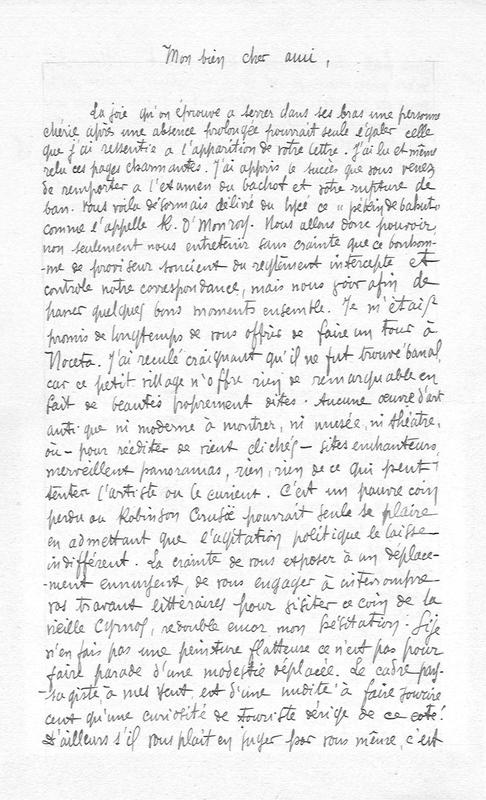 Mon bien cher ami,
La joie qu'on éprouve a serrer dans ses bras une personne
chérie après une absence prolongée pourrait seule égaler celle
que j'ai ressentie a l'apparition de votre lettre. J'ai lu et même
relu ces pages charmantes. J'ai appris le succès que vous venez
de remporter a l'examen du bachot et votre rupture de
ban. Vous voila désormais délivré du lycé ce "
comme l'appelle R. D'Monroy. Nous allons donc pouvoir,
non seulement nous entretenir sans crainte que ce bonhom-
-me de proviseur soucient du reglément intercepte et
controle notre correspondance, mais nous voir afin de
passer quelques bons moments ensemble. Je m'étais
promis de longtemps de vous offrir de faire un tour à
Noceta. J'ai reculé craignant qu'il ne fut trouvé banal,
car ce petit village n'offre rien de remarquable en
fait de beautés proprement dites. Aucune œuvre d'art
antique ni moderne à montrer, ni musée, ni théâtre,
ou - pour rééditer de vieux clichés - sites enchanteurs,
merveillent panoramas, rien, rien de ce qui peut
tenter l'artiste ou le curieut. C'est un pauvre coin
perdu ou Robinson Crusoë pourrait seule se plaire
en admettant que l'agitation politique le laisse
indifférent. La crainte de vous exposer à un déplace-
-ment ennuyent, de vous engager à interrompre
vos travaut littéraires pour visiter ce coin de la
vieille Cyrnos, redouble encor mon hésitation. Si je
n'en fais pas une peinture flatteuse ce n'est pas pour
faire parade d'une modestie déplacée. Le cadre pay-
-sagiste à mes yeut, est d'une nudité à faire sourire
ceut qu'une curiosité de touriste dérige de ce coté!
D'ailleurs s'il vous plait en juger par vous même, c'est